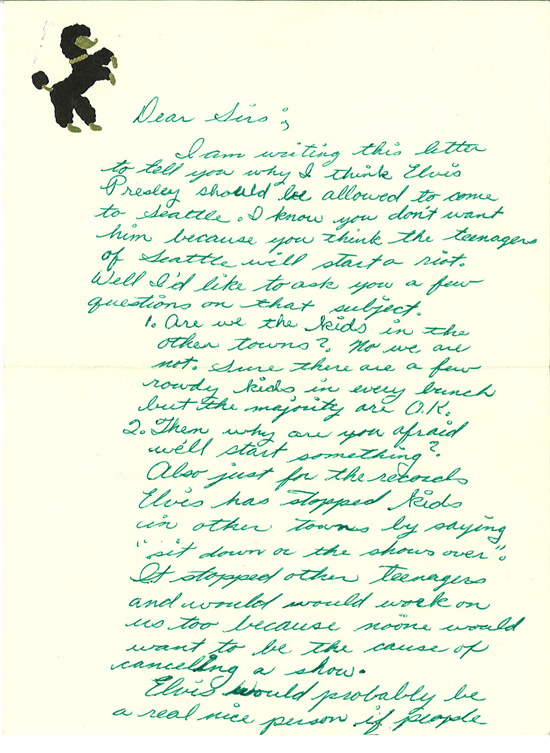 Dear Sirs:,
I am writing this letter
to tell you why I think Elvis
Presley should be allowed to come
to Seattle. I know you don't want
him because you think the teenagers
of Seattle will start a riot.
Well I'd like to ask you a few
questions on that subject.
1. Are we the kids in the
other towns? No we are
not. Sure there are a few
rowdy kids in every bunch
but the majority are O.K.
2. Then why are you afraid
we'll start something?
Also just for the records
Elvis has stopped kids
in other towns by saying
"sit down or the shows over".
It stopped other teenagers
and would would work on
us too because noone would
want to be the cause of
cancelling a show.
Elvis would probably be
a real nice person if people